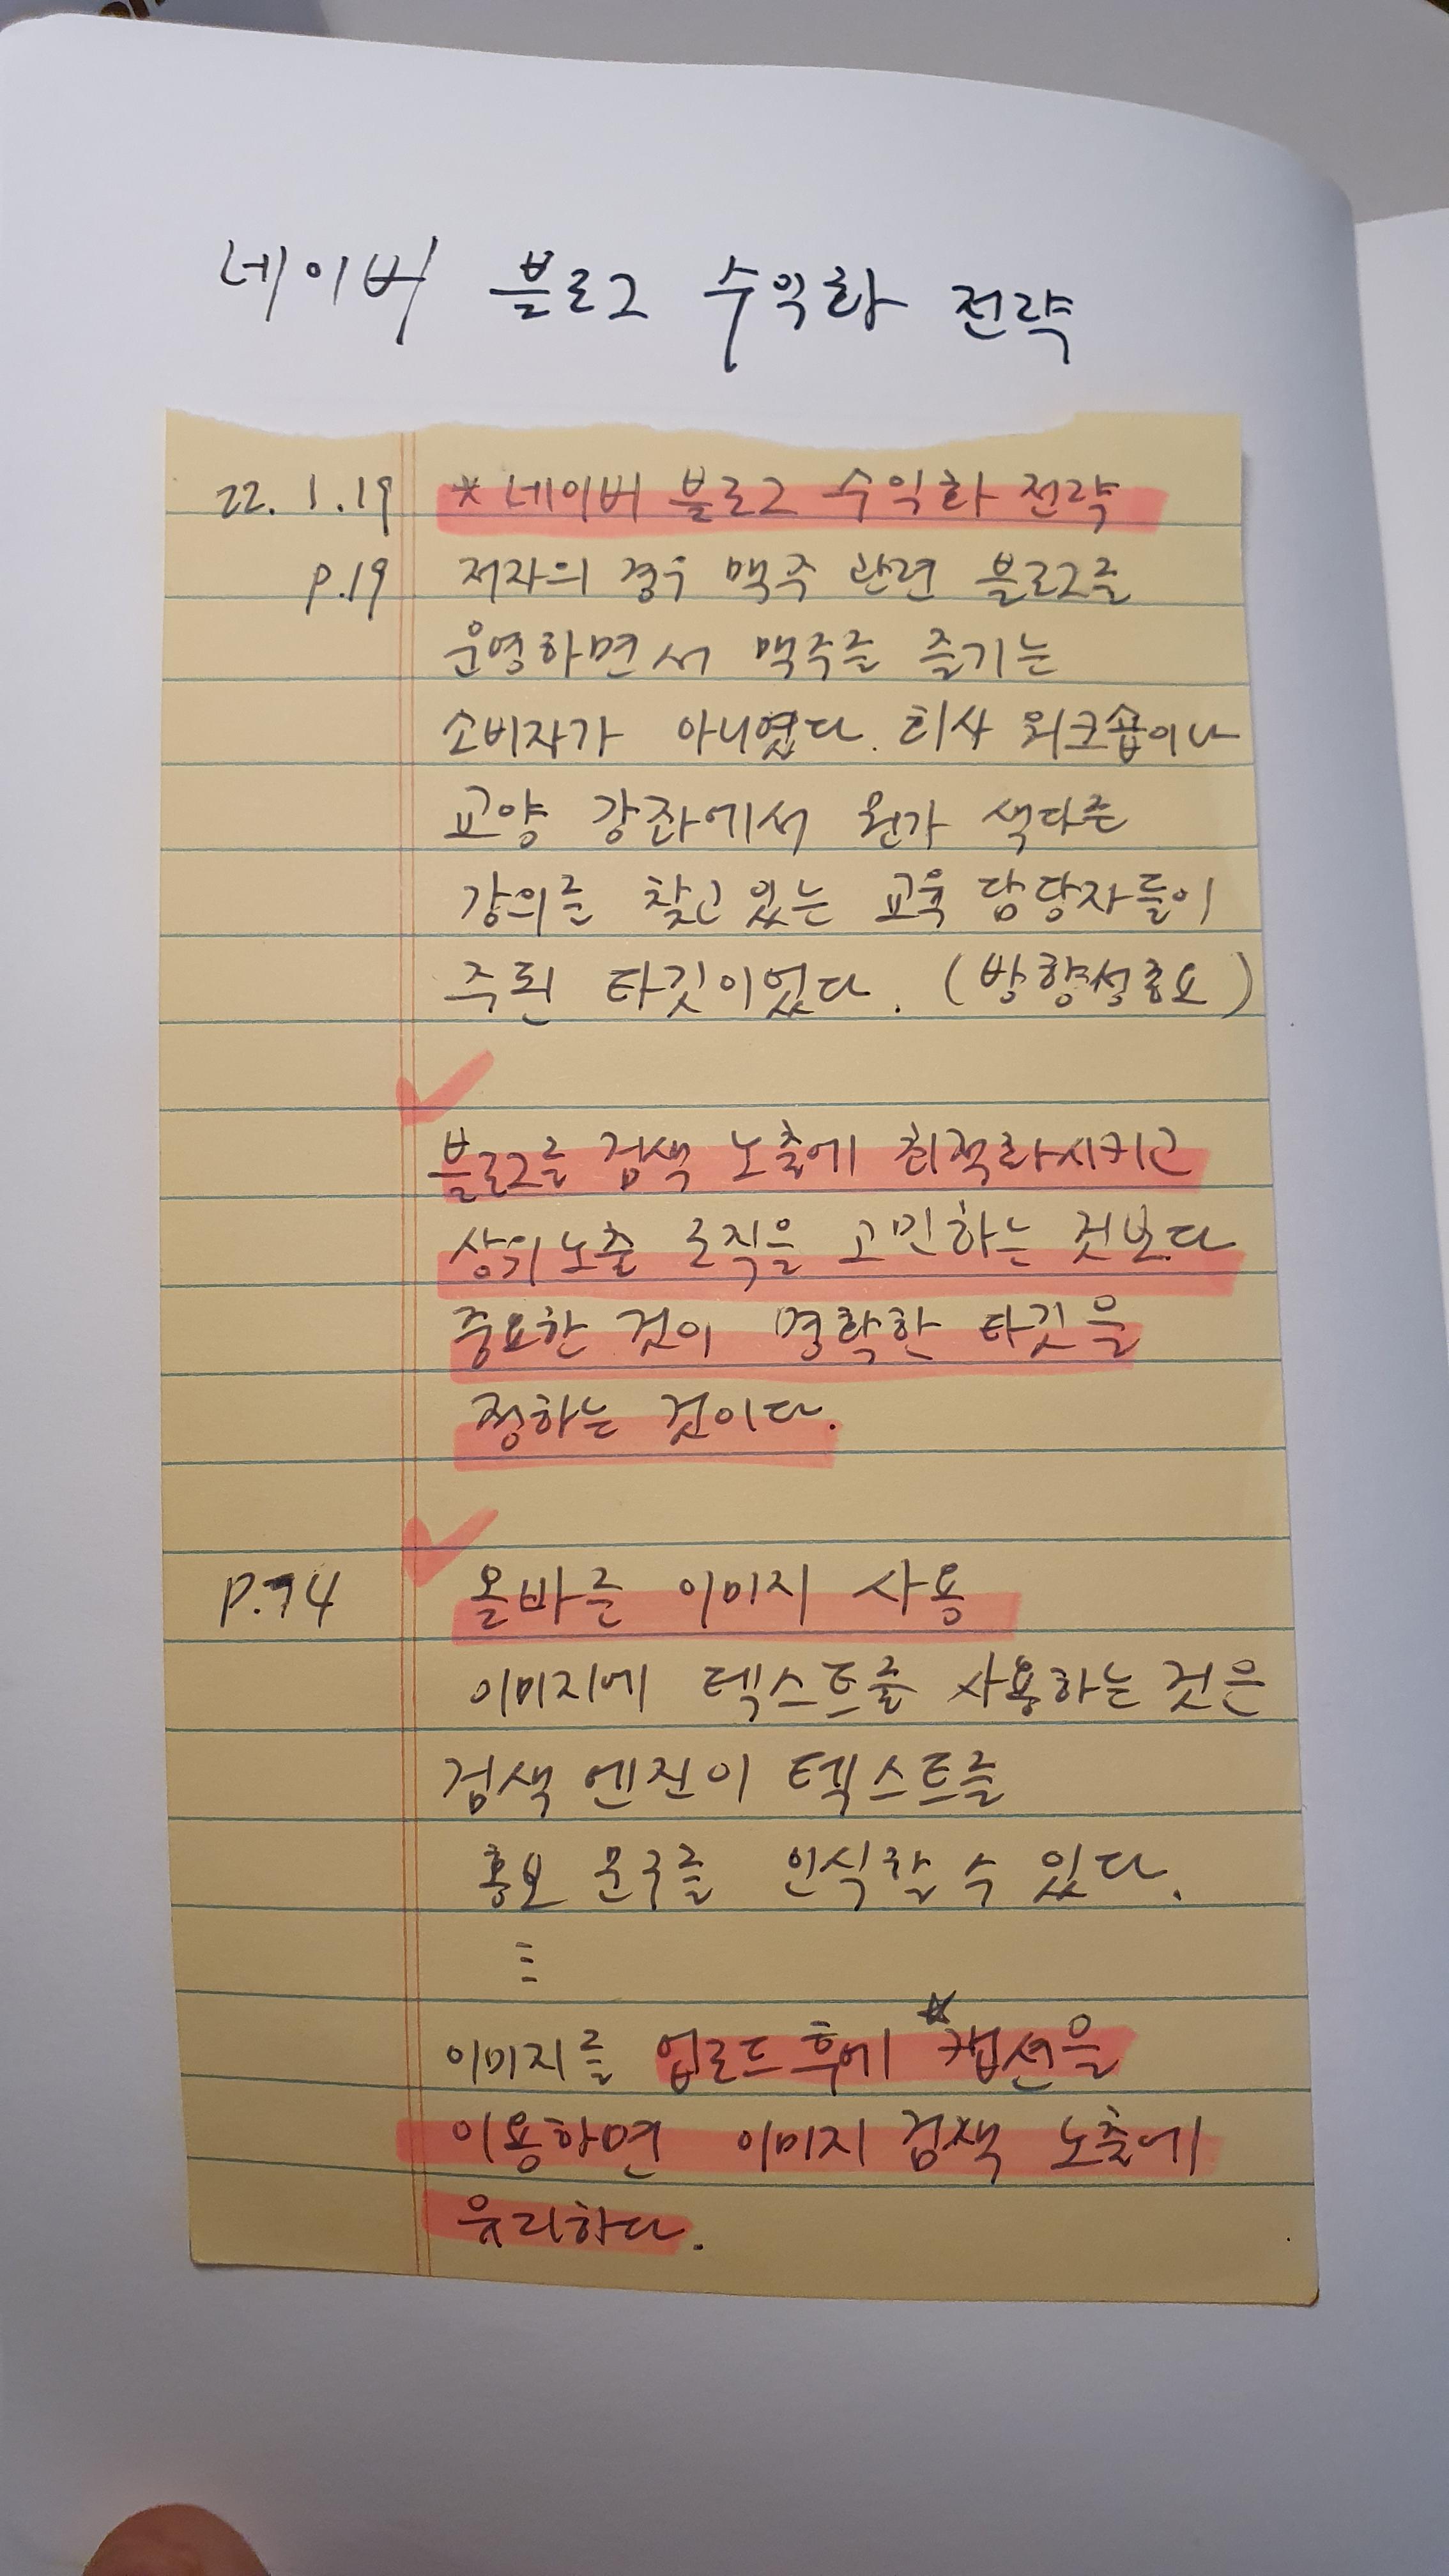 네이버 블로그 수익화 전략
22. 1. 19 * 네이버 블로그 수익화 전략
p.19 저자의 경우 맥주 관련 블로그를
운영하면서 맥주를 즐기는
소비자가 아니였다. 회사 워크숍이나
교양 강좌에서 뭔가 색다른
강의를 찾고 있는 교육 담당자들이
주된 타깃이었다. (방향성 중요)
블로그를 검색 노출에 최적화시키고
상위노출 로직을 고민하는 것보다
중요한 것이 명확한 타깃을
정하는 것이다.
P.74 올바른 이미지 사용
이미지에 텍스트를 사용하는 것은
검색 엔진이 텍스트를
홍보 문구를 인식할 수 있다.
⋮
이미지를 업로드 후에 *캡션을
이용하면 이미지 검색 노출에
유리하다.